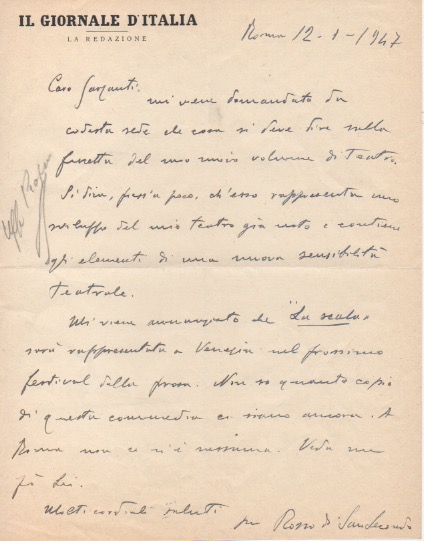 IL GIORNALE D'ITALIA
LA REDAZIONE
Roma 12-1-1947
Caro Garzanti:
mi viene domandato da
codesta sede che cosa si deve dire sulla
fascetta del mio nuovo volume di teatro.
Si dica, press'a poco, ch'esso rappresenta uno
sviluppo del mio teatro già noto e contiene
gli elementi di una nuova sensibilità
teatrale.
Mi viene annunziato che "La scala"
sarà rappresentata a Venezia nel prossimo
festival della prosa. Non so quante copie
di questa commedia ci siano ancora. A
Roma non ce n'è nessuna. Veda un
pò Lei.
Molti cordiali saluti
Rosso di San Secondo